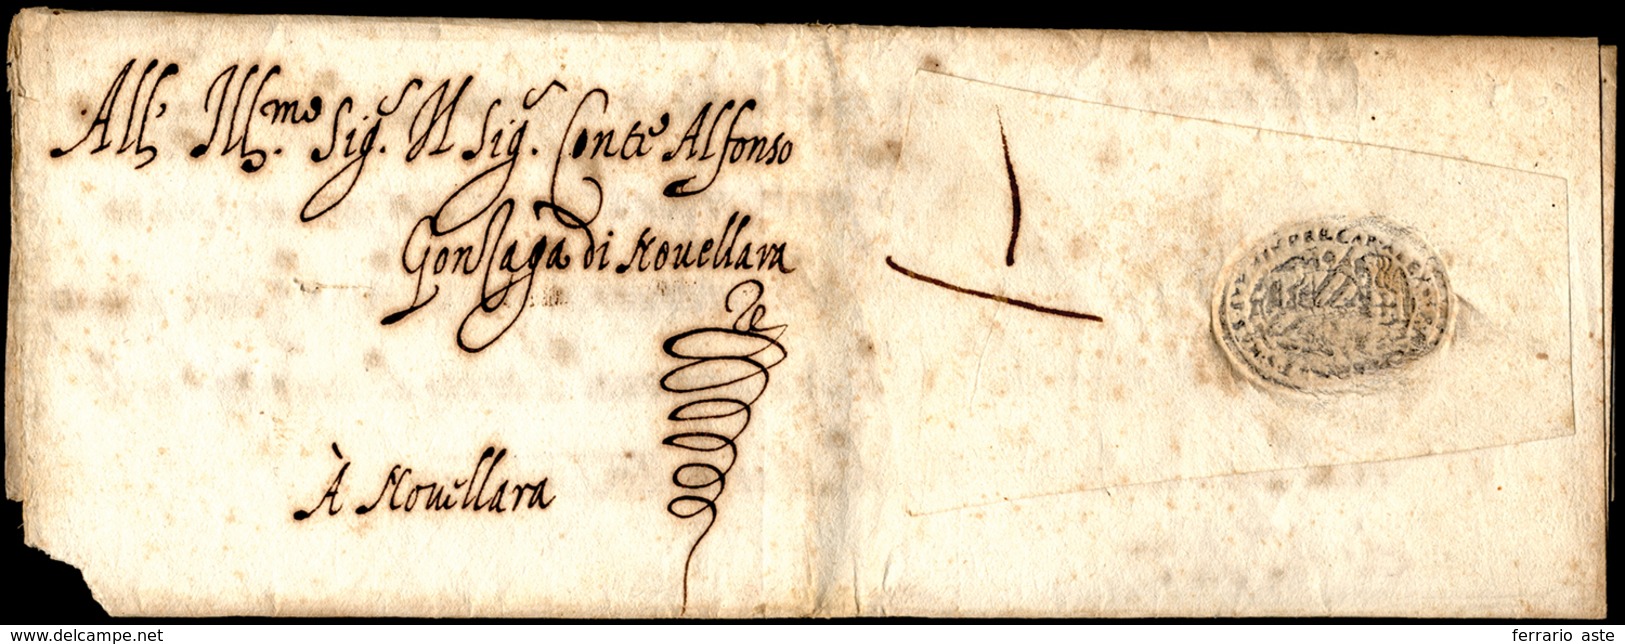 All' Ill.mo Sig.r Il Sig.r Conte Alfonso
Gonzaga di Novellara
À Novellara
www.delcampe.net
ferrario aste